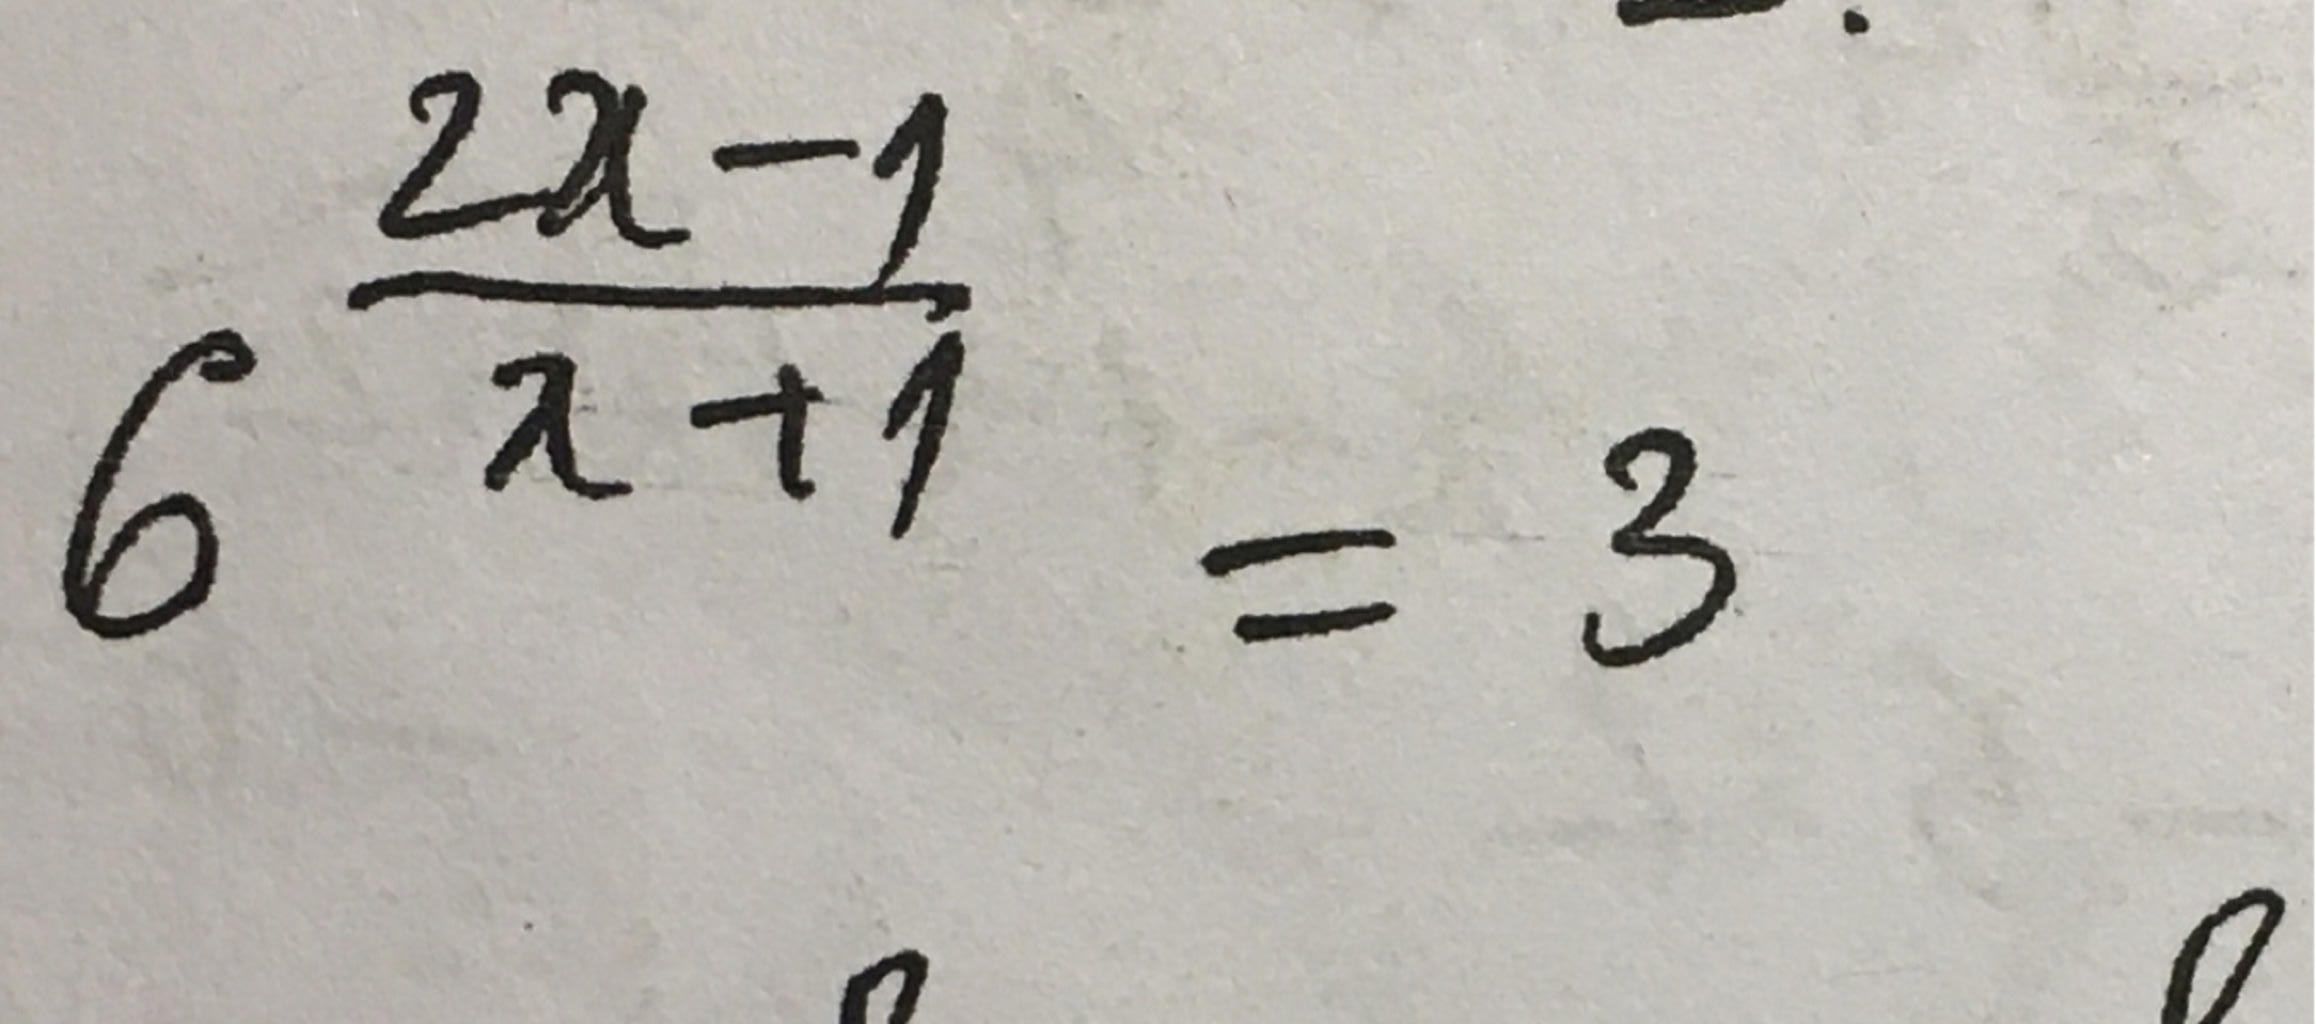 6^{\frac{2x-1}{x+1}} = 3